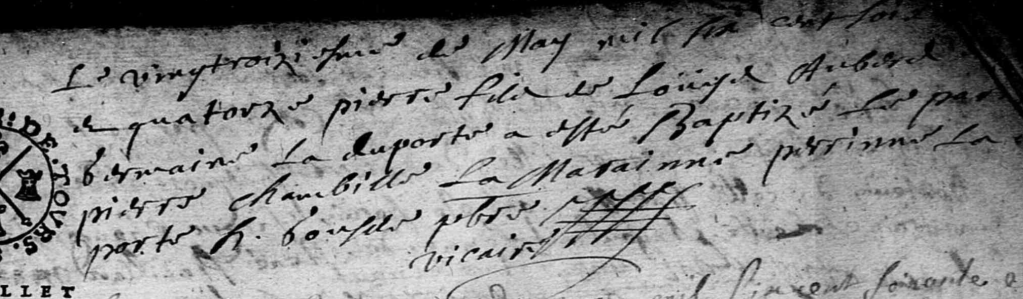 Le vingtroiziesme de May mil six cent soix
et quatorze pierre filz de Louys Auberd
Germaine La duporte a esté Baptizé Le par
pierre Chambille La Marainne perrinne La
porte pbre
vicaire
DE TOVRS
LLET
soixante